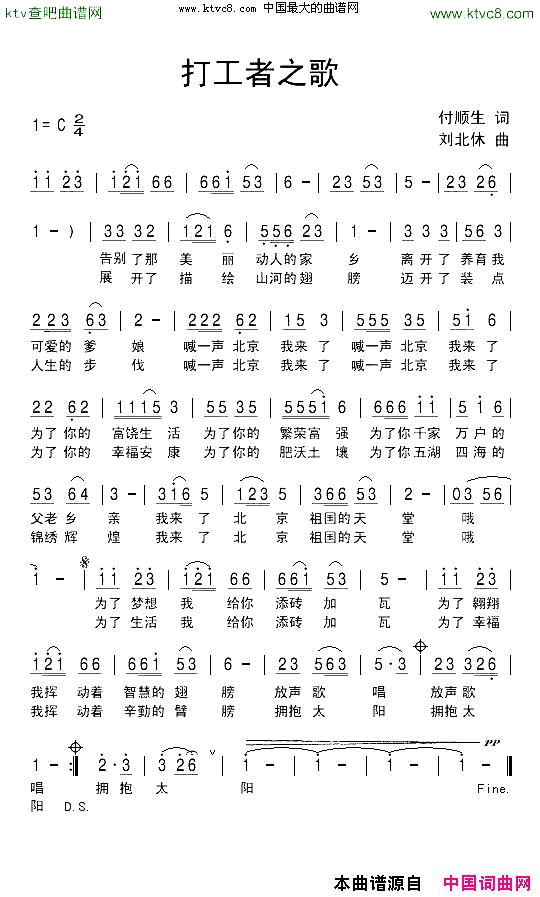 ktv查吧曲谱网
www.ktvc8.com 中国最大的曲谱网
www.ktvc8.com
打工者之歌
1= C 2/4
付顺生 词
刘北休 曲
1 1 2 3 | 1 2 1 6 6 | 6 6 1 5 3 | 6 - | 2 3 5 3 | 5 - | 2 3 2 6 |
1 - ) | 3 3 3 2 | 1 2 1 6 | 5 5 6 2 3 | 3 - | 3 3 3 | 5 6 3 |
告别了那 美 丽 动人的家 乡 离开了 养育我
展 开了 描 绘 山河的翅 膀 迈开了 装 点
2 2 3 6 3 | 2 - | 2 2 2 6 2 | 1 5 3 | 5 5 5 3 5 | 5 1 6 |
可爱的 爹 娘 喊一声 北京 我来 了 喊一声 北京 我来 了
人生的 步 伐 喊一声 北京 我来 了 喊一声 北京 我来 了
2 2 6 2 | 1 1 1 5 3 | 5 5 3 5 | 5 5 5 1 6 | 6 6 6 1 1 | 5 1 6 |
为了 你的 富饶生 活 为了 你的 繁荣富 强 为了你 千家 万 户的
为了 你的 幸福安 康 为了 你的 肥沃土 壤 为了你 五湖 四 海的
5 3 6 4 | 3 - | 3 1 6 5 | 1 2 3 5 | 3 6 6 5 | 2 - | 0 3 5 6 |
父老 乡 亲 我来 了 北 京 祖国的 天 堂 哦
锦绣 辉 煌 我来 了 北 京 祖国的 天 堂 哦
1 - | 1 1 2 3 | 1 2 1 6 6 | 6 6 1 5 3 | 5 - | 1 1 2 3 |
为了 梦想 我 给你 添砖 加 瓦 为了 翱翔
为了 生活 我 给你 添砖 加 瓦 为了 幸福
1 2 1 6 6 | 5 5 6 1 5 3 | 6 - | 2 3 5 6 3 | 5 · 3 | 2 3 3 2 6 |
我挥 动着 智慧的 翅 膀 放声 歌 唱 放声 歌
我挥 动着 辛勤的 臂 膀 拥抱 太 阳 拥抱 太
1 - :| 2 · 3 | 3 2 6 v | 1 - | 1 - | 1 - | 1 - ‖
pp
唱 拥 抱 太 阳 Fine.
阳 D.S.
本曲谱源自 中国词曲网